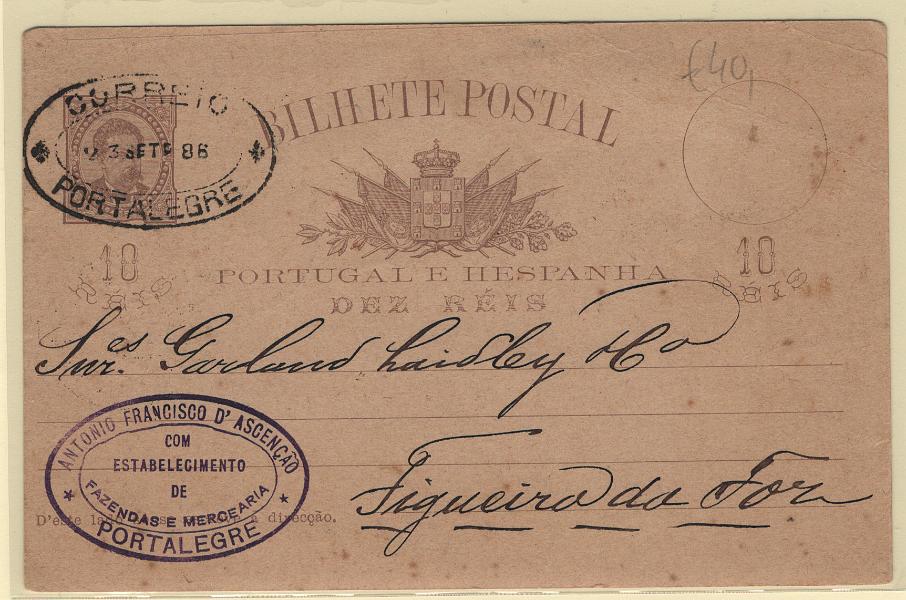 €40,
CORREIO
23 SETº 86
PORTALEGRE
BILHETE POSTAL
10 RÉIS
10 RÉIS
PORTUGAL E HESPANHA
DEZ RÉIS
Snres. Garland Laidley & Cº
Figueira da Foz
ANTONIO FRANCISCO D'ASCENÇÃO
COM
ESTABELECIMENTO
DE
FAZENDAS E MERCEARIA
PORTALEGRE
D'este la a direcção.